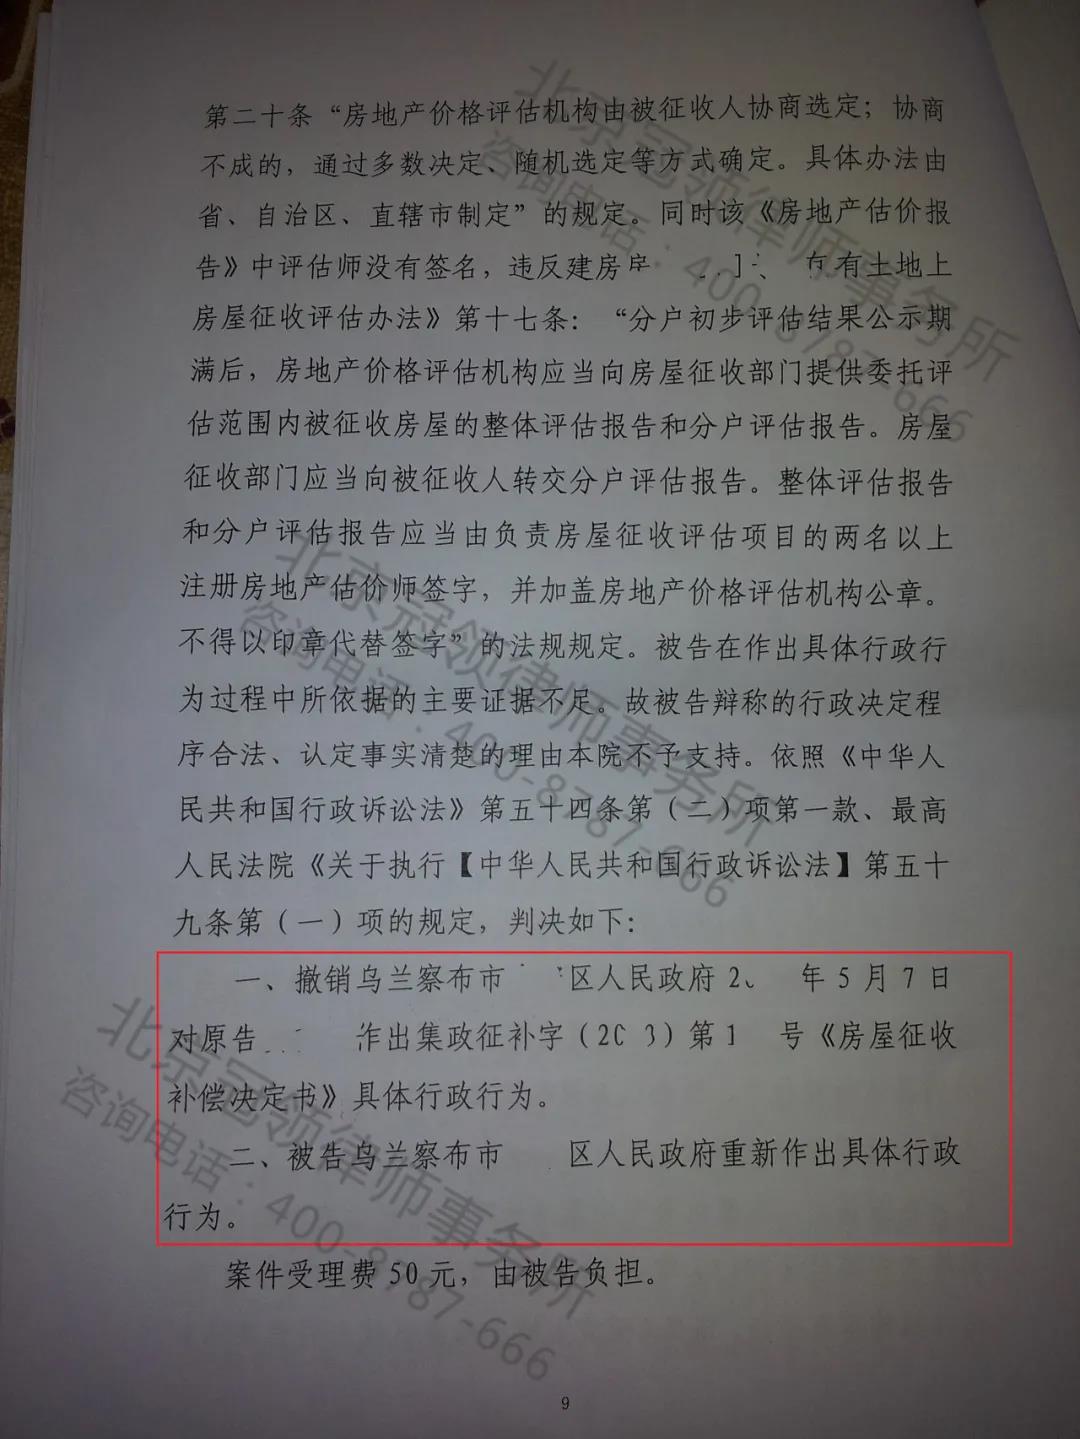 第二十条“房地产价格评估机构由被征收人协商选定；协商
不成的，通过多数决定、随机选定等方式确定。具体办法由
省、自治区、直辖市制定”的规定。同时该《房地产估价报
告》中评估师没有签名，违反建房 有土地上
房屋征收评估办法》第十七条：“分户初步评估结果公示期
满后，房地产价格评估机构应当向房屋征收部门提供委托评
估范围内被征收房屋的整体评估报告和分户评估报告。房屋
征收部门应当向被征收人转交分户评估报告。整体评估报告
和分户评估报告应当由负责房屋征收评估项目的两名以上
注册房地产估价师签字，并加盖房地产价格评估机构公章。
不得以印章代替签字”的法规规定。被告在作出具体行政行
为过程中所依据的主要证据不足。故被告辩称的行政决定程
序合法、认定事实清楚的理由本院不予支持。依照《中华人
民共和国行政诉讼法》第五十四条第（二）项第一款、最高
人民法院《关于执行【中华人民共和国行政诉讼法】第五十
九条第（一）项的规定，判决如下：
一、撤销乌兰察布市 区人民政府2 年5月7日
对原告 作出集政征补字（20 3）第1 号《房屋征收
补偿决定书》具体行政行为。
二、被告乌兰察布市 区人民政府重新作出具体行政
行为。
案件受理费50元，由被告负担。
9
北京冠领律师事务所
咨询电话：400-8787-666
北京冠领律师事务所
咨询电话：400-8787-666
北京冠领律师事务所
咨询电话：400-8787-666